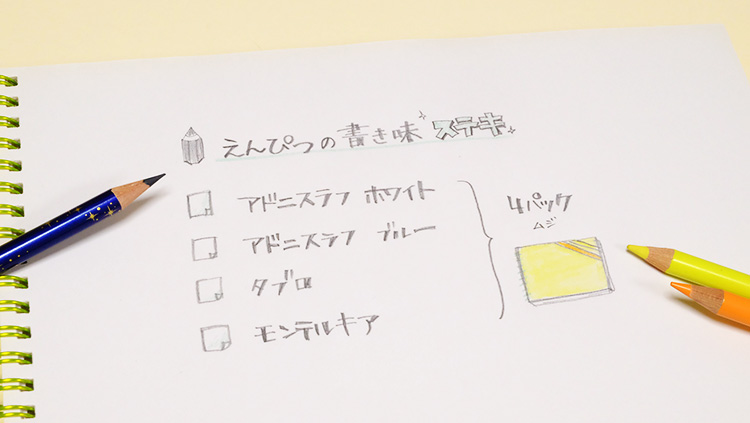 えんぴつの書き味 ステキ
アドニスラフ ホワイト
アドニスラフ ブルー
タブロ
モンテルキア
4パック
ムジ